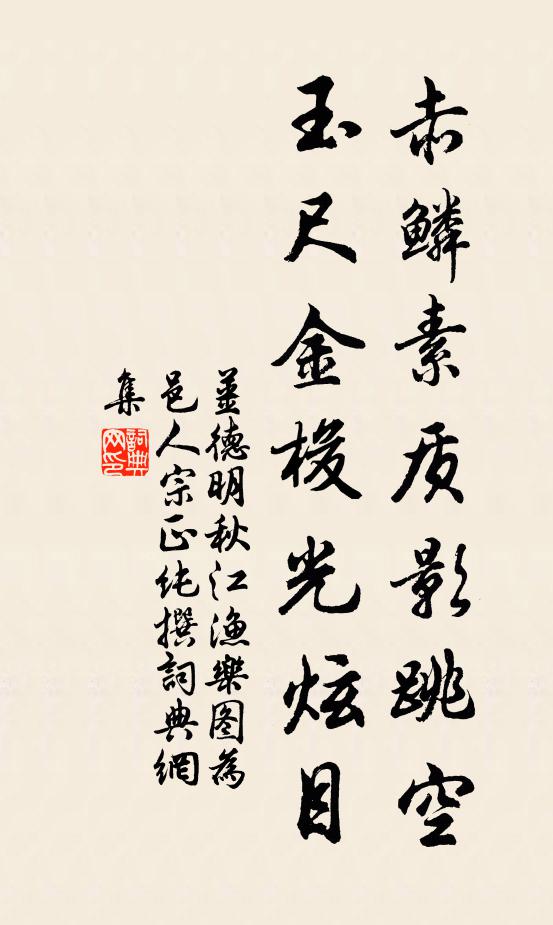 赤鳞素质影跳空
玉尺金梭光炫目
姜德明秋江渔樂图為
邑人宗正纯撰詞典網
集
詞典
网印